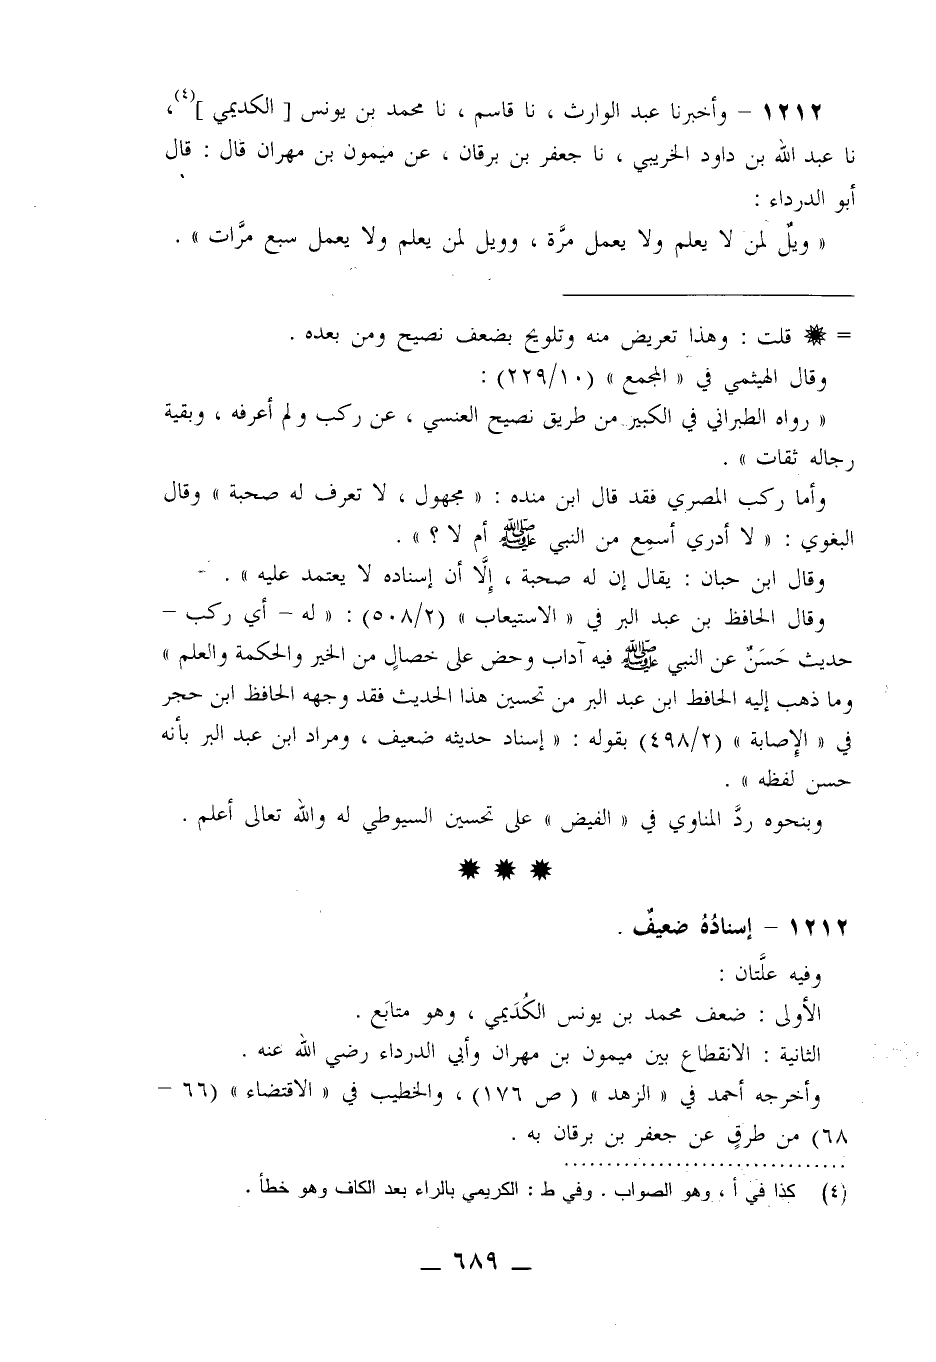 ١٢١٢ – وأخبرنا عبد الوارث ، نا قاسم ، نا محمد بن يونس [ الكديمي ](٤)،
نا عبد الله بن داود الخريبي ، نا جعفر بن برقان ، عن ميمون بن مهران قال : قال
أبو الدرداء :
« ويلٌ لمن لا يعلم ولا يعمل مرَّة ، وويل لمن يعلم ولا يعمل سبع مرَّات » .
= ✸ قلت : وهذا تعريض منه وتلويح بضعف نصيح ومن بعده .
وقال الهيثمي في « المجمع » (٢٢٩/١٠) :
« رواه الطبراني في الكبير من طريق نصيح العنسي ، عن ركب ولم أعرفه ، وبقية
رجاله ثقات » .
وأما ركب المصري فقد قال ابن منده : « مجهول ، لا تعرف له صحبة » وقال
البغوي : « لا أدري أسمع من النبي ﷺ أم لا ؟ » .
وقال ابن حبان : يقال إن له صحبة ، إلَّا أن إسناده لا يعتمد عليه » .
وقال الحافظ بن عبد البر في « الاستيعاب » (٥٠٨/٢) : « له – أي ركب –
حديث حَسَنٌ عن النبي ﷺ فيه آداب وحض على خصالٍ من الخير والحكمة والعلم »
وما ذهب إليه الحافط ابن عبد البر من تحسين هذا الحديث فقد وجهه الحافظ ابن حجر
في « الإصابة » (٤٩٨/٢) بقوله : « إسناد حديثه ضعيف ، ومراد ابن عبد البر بأنه
حسن لفظه » .
وبنحوه ردَّ المناوي في « الفيض » على تحسين السيوطي له والله تعالى أعلم .
✸ ✸ ✸
١٢١٢ – إسنادُهُ ضعيفٌ .
وفيه علَّتان :
الأولى : ضعف محمد بن يونس الكُدَيمي ، وهو متابَع .
الثانية : الانقطاع بين ميمون بن مهران وأبي الدرداء رضي الله عنه .
وأخرجه أحمد في « الزهد » ( ص ١٧٦) ، والخطيب في « الاقتضاء » (٦٦ –
٦٨) من طرقٍ عن جعفر بن برقان به .
(٤) كذا في أ ، وهو الصواب . وفي ط : الكريمي بالراء بعد الكاف وهو خطأ .
— ٦٨٩ —